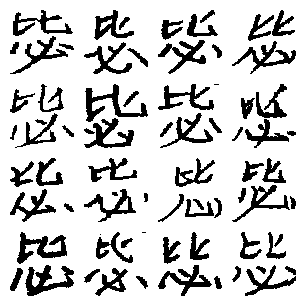 毖毖毖毖
毖毖毖毖
毖毖毖毖
毖毖毖毖